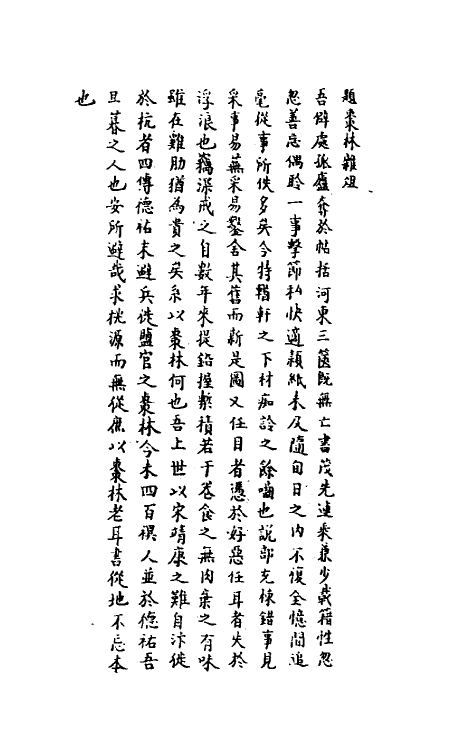 題棗林雜俎
吾僻處孤廬奪於帖括河東三篋既無亡書茂先連乘兼少載籍性忽
忽善忘偶聆一事擊節私快適穎紙未及隨旬日之内不復全憶間追
毫從事所佚多矣今特輶軒之下材痴詅之餘嘲也說部充棟錯事見
采事易蕪采易鑿舍其舊而新是圖又任目者憑於好惡任耳者失於
浮浪也竊深戒之自數年來提鉛握槧積若干卷食之無肉棄之有味
雖在雞肋猶為貴之矣系以棗林何也吾上世以宋靖康之難自汴徙
於杭者四傳德祐末避兵徙鹽官之棗林今未四百禩人並於德祐吾
旦暮之人也安所避哉求桃源而無從庶以棗林老耳書從地不忘本
也